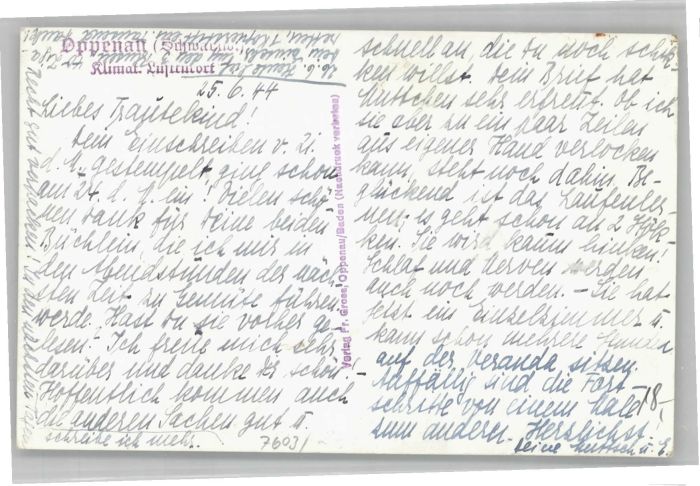 Oppenau (Schwarzwald)
Klimat. Luftkurort
25.6.44
Liebes Trautekind!
Dein Einschreiben v. 21.
d. M. gestempelt, ging schon
am 24. d. M. ein! Vielen schö-
nen Dank für Deine beiden
Büchlein, die ich mir in
den Abendstunden der näch-
sten Zeit zu Gemüte führen
werde. Hast Du sie vorher ge-
lesen? Ich freue mich sehr
darüber und danke Dir schön!
Hoffentlich kommen auch
die anderen Sachen gut u.
schnell an, die Du noch schik-
ken willst. Dein Brief hat
Muttchen sehr erfreut. Ob ich
sie aber zu ein paar Zeilen
aus eigener Hand verlocken
kann, steht noch dahin. Be-
glückend ist das Laufenler-
nen; es geht schon an 2 Stök-
ken. Sie wird kaum hinken!
Schlaf und Nerven werden
auch noch werden. – Sie hat
jetzt ein Einzelzimmer u.
kann schon mehrere Stunden
auf der Veranda sitzen.
Auffällig sind die Fort-
schritte von einem Male
zum anderen. Herzlichst
Deine Muttsch u. E.
schreibe ich mehr.
Verlag Fr. Gross, Oppenau/Baden (Nachdruck verboten)
7603/
18,-